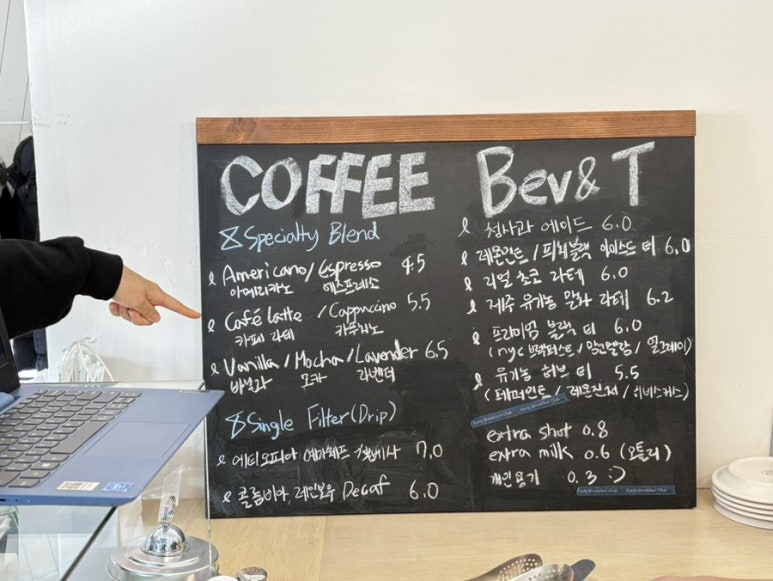 COFFEE
Specialty Blend
Americano / Espresso 4.5
아메리카노 에스프레소
Café latte / Cappuccino 5.5
카페 라떼 카푸치노
Vanilla / Mocha / Lavender 6.5
바닐라 모카 라벤더
Single Filter (Drip)
에티오피아 예가체프 7.0
콜롬비아 레인보우 Decaf 6.0
Bev & T
청사과 에이드 6.0
레몬민트 / 피치블랙 아이스드 티 6.0
리얼 초코 라떼 6.0
제주 유기농 말차 라떼 6.2
프리미엄 블랙 티 6.0
(nyc 브랙퍼스트 / 얼그레이)
유기농 허브 티 5.5
(페퍼민트 / 레몬진저 / 히비스커스)
extra shot 0.8
extra milk 0.6 (오틀리)
개인용기 0.3 :)